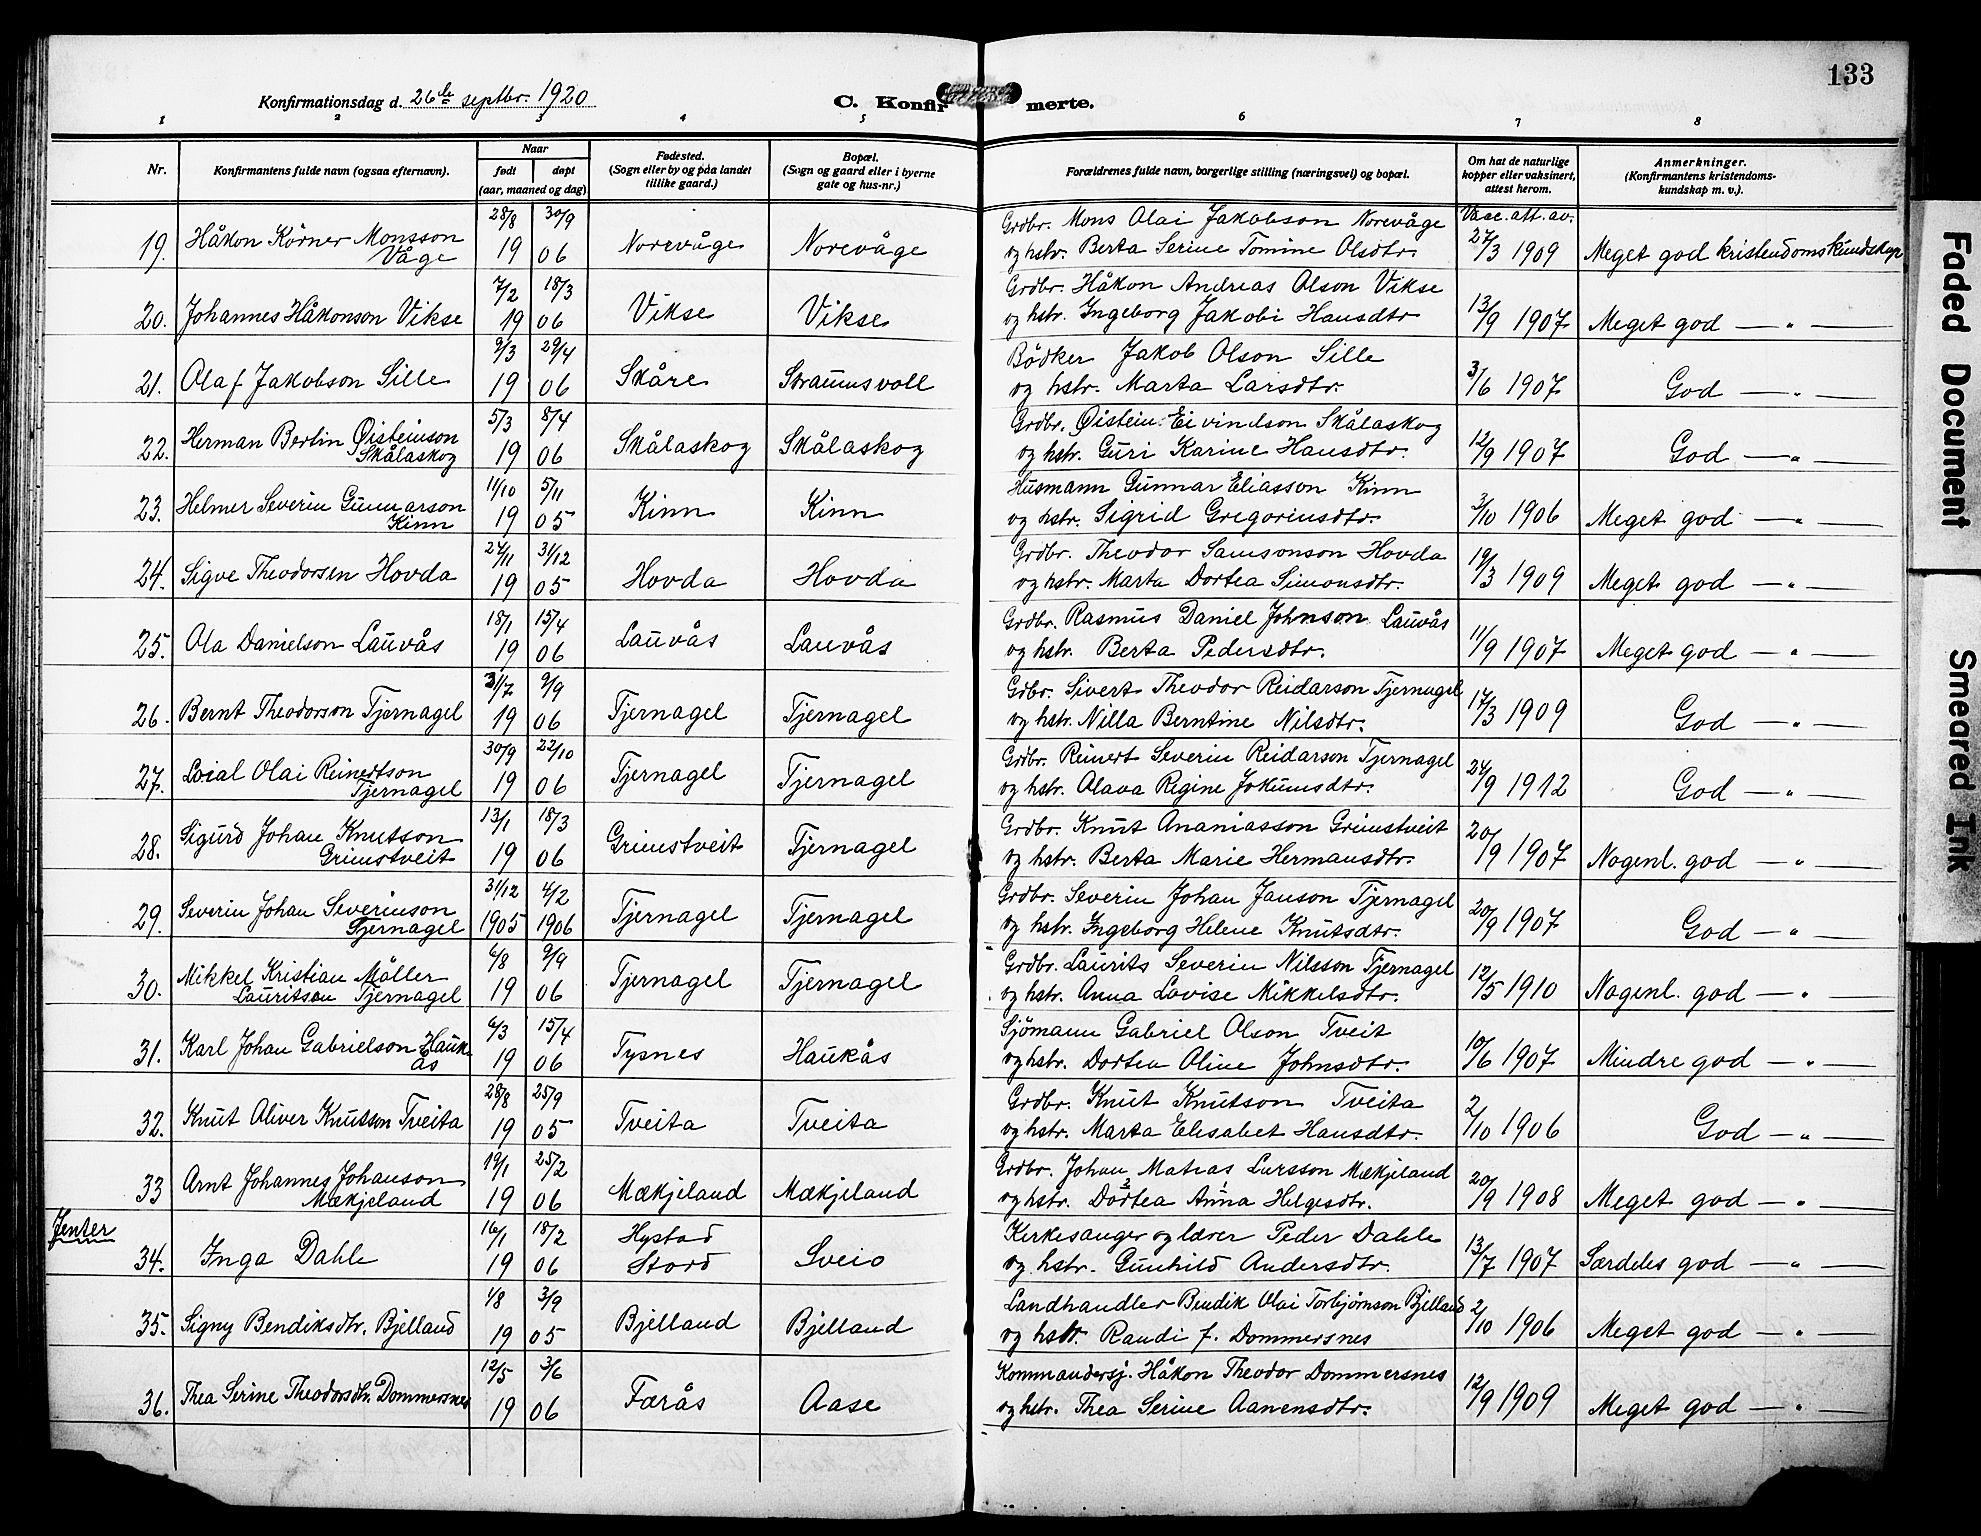 133
Konfirmationsdag d. 26de septbr. 1920
C. Konfirmerte.
1 2 3 4 5 6 7 8
Nr.
Konfirmantens fulde navn (ogsaa efternavn).
Naar
født døpt
(aar, maaned og dag)
Fødested.
(Sogn eller by og paa landet
tillike gaard.)
Bopæl.
(Sogn og gaard eller i byerne
gate og hus-nr.)
Forældrenes fulde navn, borgerlige stilling (næringsvei) og bopæl.
Om hat de naturlige
kopper eller vaksinert,
attest herom.
Anmerkninger.
(Konfirmantens kristendoms-
kundskap m. v.).
28/8 30/9 Grdbr. Mons Olai Jakobson Norevåge Vacc. att. av.
19. Håkon Körner Monsson Våge 19 06 Norevåge Norevåge og hstr. Berta Serine Tomine Olsdtr. 27/3 1909 Meget god kristendomskundskap
7/2 18/3 Grdbr. Håkon Andreas Olson Vikse
20. Johannes Håkonson Vikse 19 06 Vikse Vikse og hstr. Ingeborg Jakobi Hansdtr 13/9 1907 Meget god — " —
9/3 29/4 Bödker Jakob Olson Sille
21. Olaf Jakobson Sille 19 06 Skåre Straumsvoll og hstr. Marta Larsdtr. 3/6 1907 God — " —
5/3 8/4 Grdbr. Øistein Eivindson Skålaskog
22. Herman Bertin Øisteinson Skålaskog 19 06 Skålaskog Skålaskog og hstr. Guri Karine Hansdtr. 12/9 1907 God — " —
11/10 5/11 Husmann Gunnar Eliasson Kinn
23. Helmer Severin Gunnarson Kinn 19 05 Kinn Kinn og hstr. Sigrid Gregoriusdtr. 3/10 1906 Meget god — " —
27/11 31/12 Grdbr. Theodor Samsonson Hovda
24. Sigve Theodorsen Hovda 19 05 Hovda Hovda og hstr. Marta Dortea Simonsdtr. 19/3 1909 Meget god — " —
18/1 15/4 Grdbr. Rasmus Daniel Johnson Lauvås
25. Ola Danielson Lauvås 19 06 Lauvås Lauvås og hstr. Berta Pedersdtr. 11/9 1907 Meget god — " —
31/7 9/9 Grdbr. Sivert Theodor Reidarson Tjernagel
26. Bernt Theodorson Tjernagel 19 06 Tjernagel Tjernagel og hstr. Nilla Berntine Nilsdtr. 17/3 1909 God — " —
30/9 22/10 Grdbr. Reinert Severin Reidarson Tjernagel
27. Loial Olai Reinertson Tjernagel 19 06 Tjernagel Tjernagel og hstr. Olava Regine Jokumsdtr. 24/9 1912 God — " —
13/1 18/3 Grdbr. Knut Ananiasson Grimstveit
28. Sigurd Johan Knutson Grimstveit 19 06 Grimstveit Tjernagel og hstr. Berta Marie Hermansdtr. 20/9 1907 Nogenl. god — " —
31/12 4/2 Grdbr. Severin Johan Janson Tjernagel
29. Severin Johan Severinson Tjernagel 1905 1906 Tjernagel Tjernagel og hstr. Ingeborg Helene Knutsdtr. 20/9 1907 God — " —
6/8 9/9 Grdbr. Laurits Severin Nilsson Tjernagel
30. Mikkel Kristian Möller Lauritson Tjernagel 19 06 Tjernagel Tjernagel og hstr. Anna Lovise Mikkelsdtr. 12/5 1910 Nogenl. god — " —
6/3 15/4 Sjömann Gabriel Olson Tveit
31. Karl Johan Gabrielson Haukås 19 06 Tysnes Haukås og hstr. Dortea Oline Johnsdtr. 10/6 1907 Mindre god — " —
28/8 25/9 Grdbr. Knut Knutson Tveita
32. Knut Oliver Knutsson Tveita 19 05 Tveita Tveita og hstr. Marta Elisabet Hansdtr. 2/10 1906 God — " —
19/1 25/2 Grdbr. Johan Matias Larsson Mækjeland
33 Arnt Johannes Johanson Mækjeland 19 06 Mækjeland Mækjeland og hstr. Dortea Anna Helgesdtr. 20/9 1908 Meget god — " —
Jenter
16/1 18/2 Hystad Kirkesanger og lærer Peder Dahle
34. Inga Dahle 19 06 Stord Sveio og hstr. Gunhild Andersdtr. 13/7 1907 Særdeles god — " —
1/8 3/9 Landhandler Bendik Olai Torbjørnson Bjelland
35. Signy Bendiksdtr. Bjelland 19 05 Bjelland Bjelland og hstr. Randi f. Dommersnes 2/10 1906 Meget god — " —
12/5 3/6 Kommandersj. Håkon Theodor Dommersnes
36. Thea Serine Theodorsdtr. Dommersnes 19 06 Færås Aase og hstr. Thea Serine Aanensdtr. 12/9 1909 Meget god — " —
Faded Document
Smeared Ink